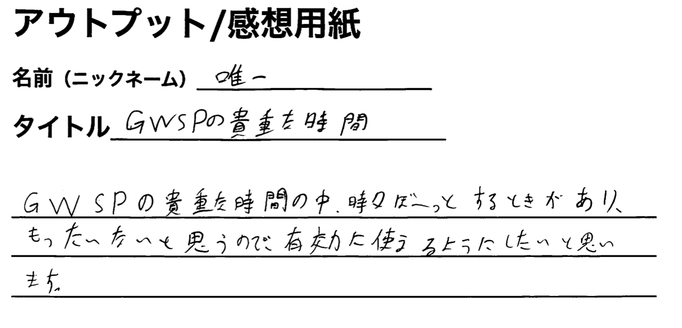 アウトプット/感想用紙
名前（ニックネーム） 唯一
タイトル GWSPの貴重な時間
GWSPの貴重な時間の中、時々ぼーっとするときがあり、
もったいないと思うので、有効に使えるようにしたいと思い
ます。